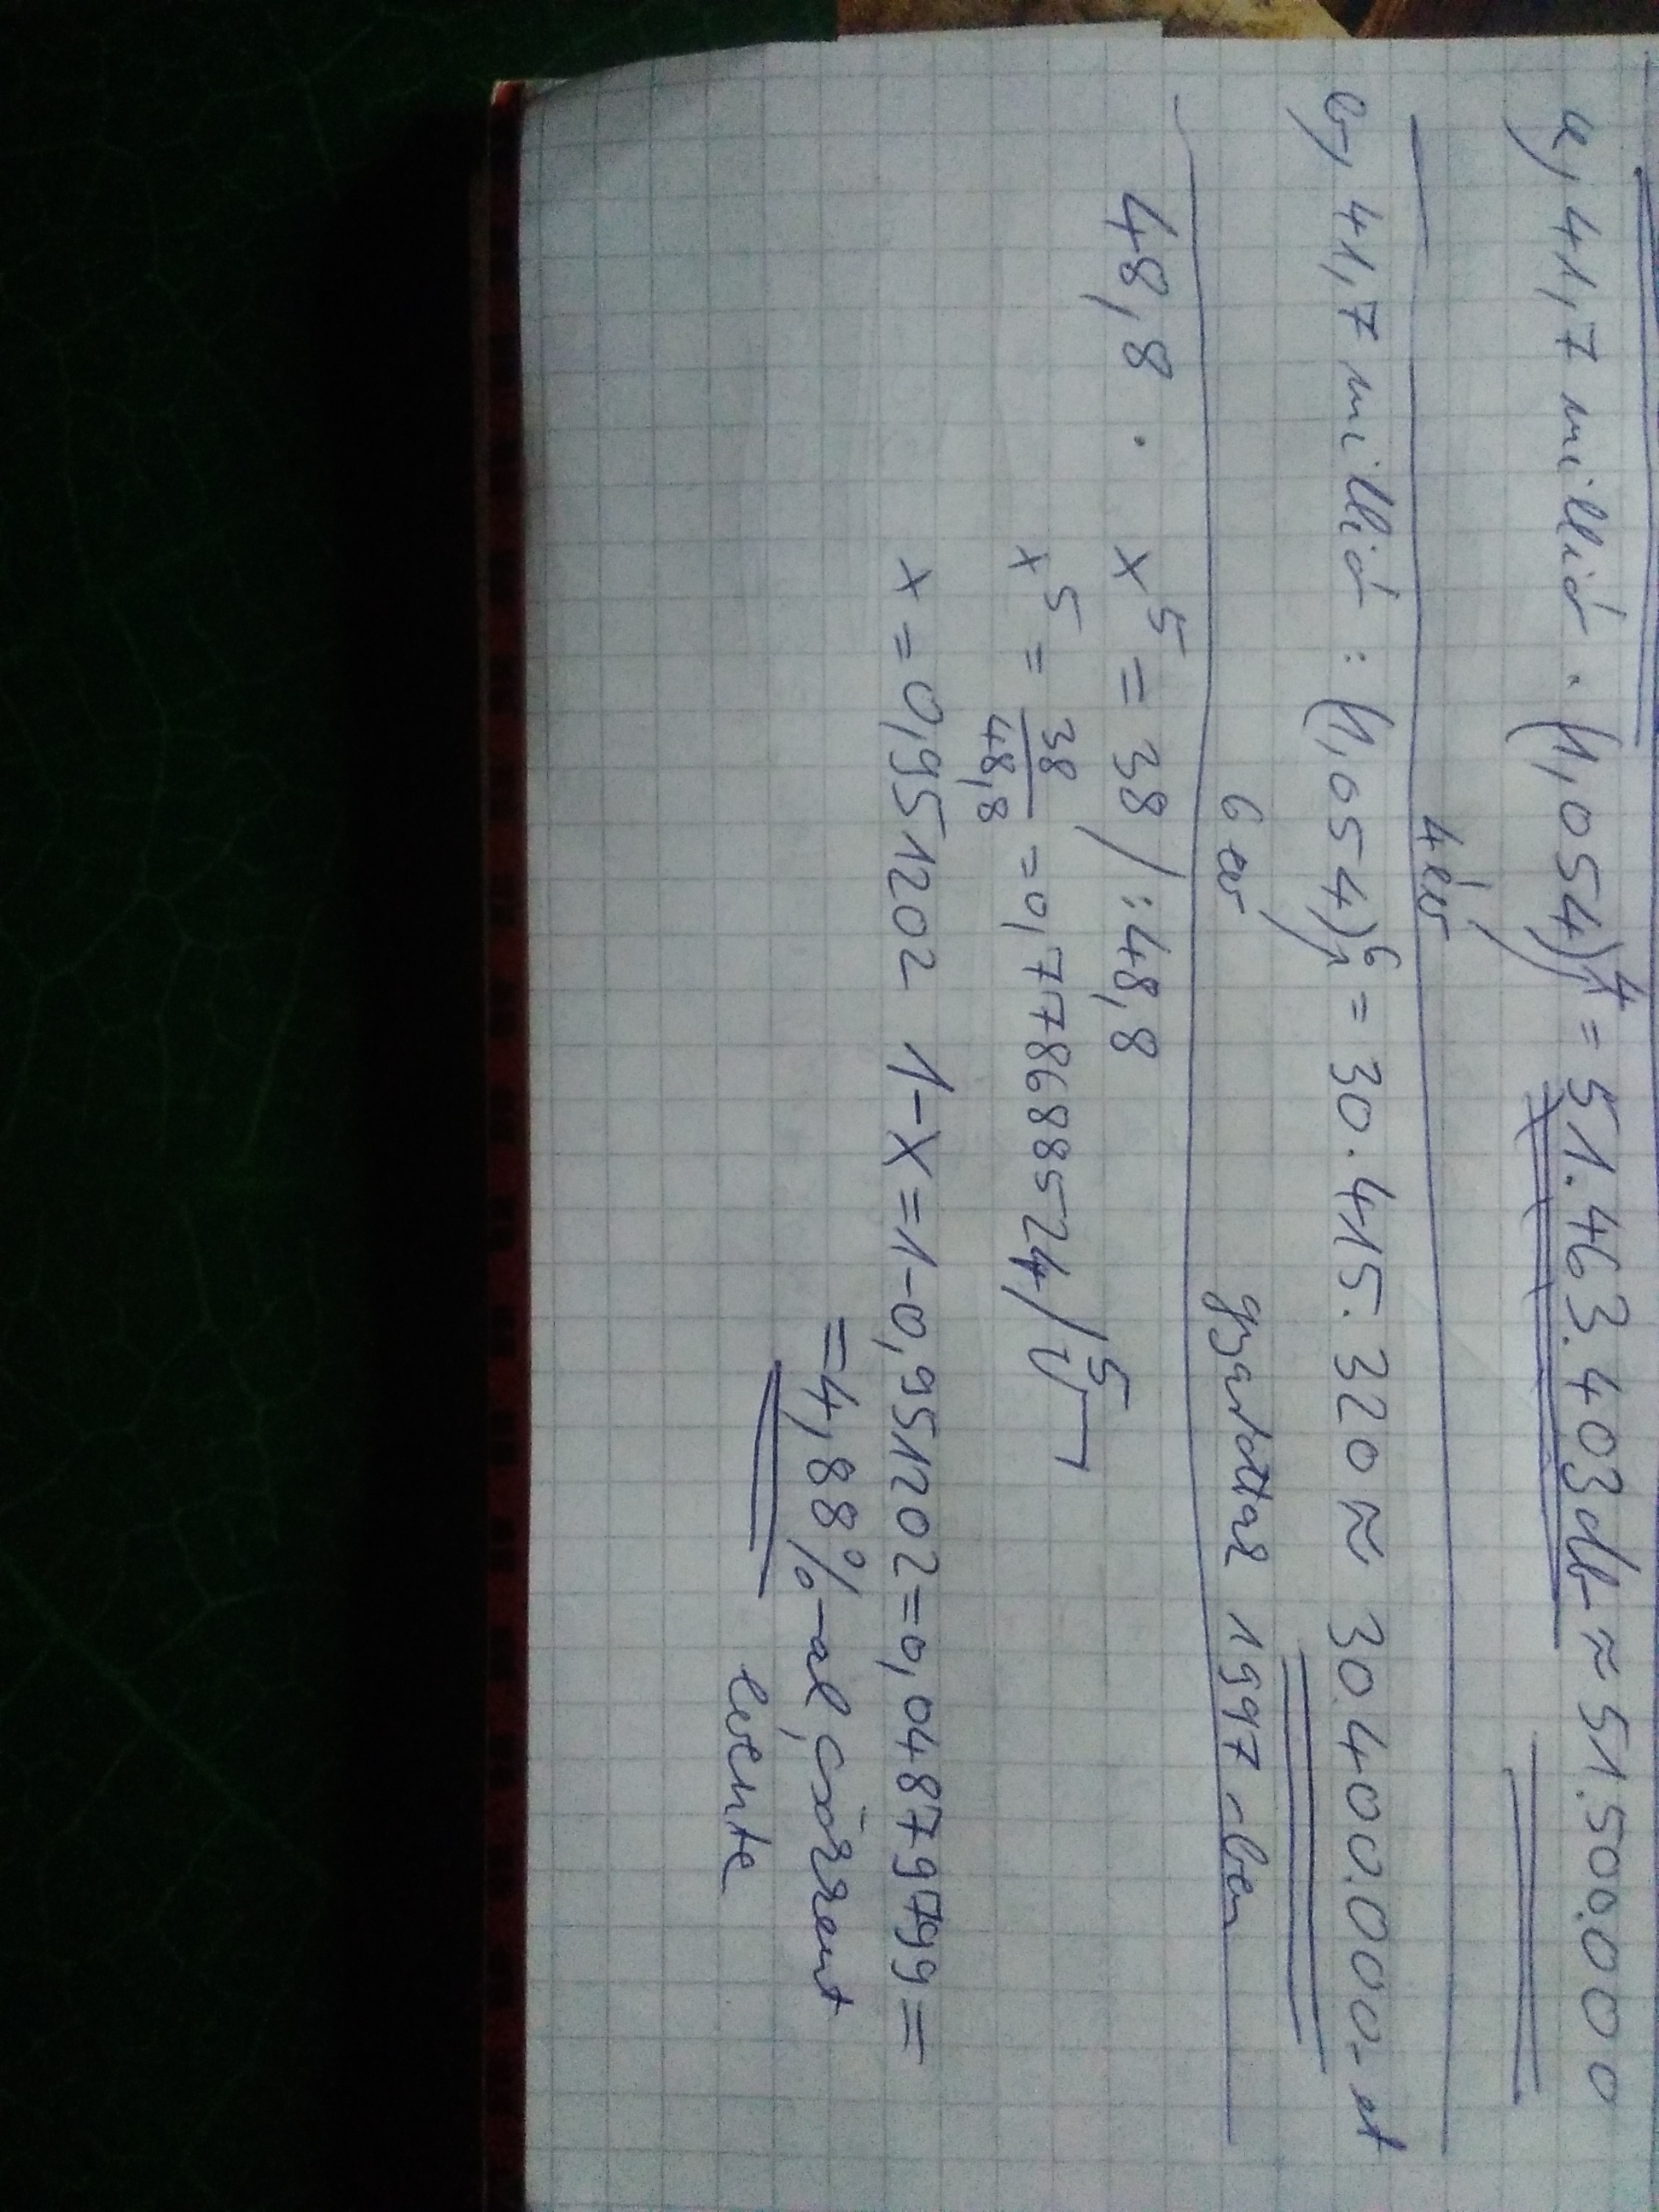 a, 41,7 millió · (1,054)^4 = 51.463.403 db ≈ 51.500.000
4 év
b, 41,7 millió : (1,054)^6 = 30.415.320 ≈ 30.400.000-et
6 év gyártottak 1997-ben
48,8 · x^5 = 38 /:48,8
x^5 = 38/48,8 = 0,778688524 / ⁵√
x = 0,951202 1-x = 1-0,951202 = 0,0487979799 =
= 4,88%-al csökkent
évente